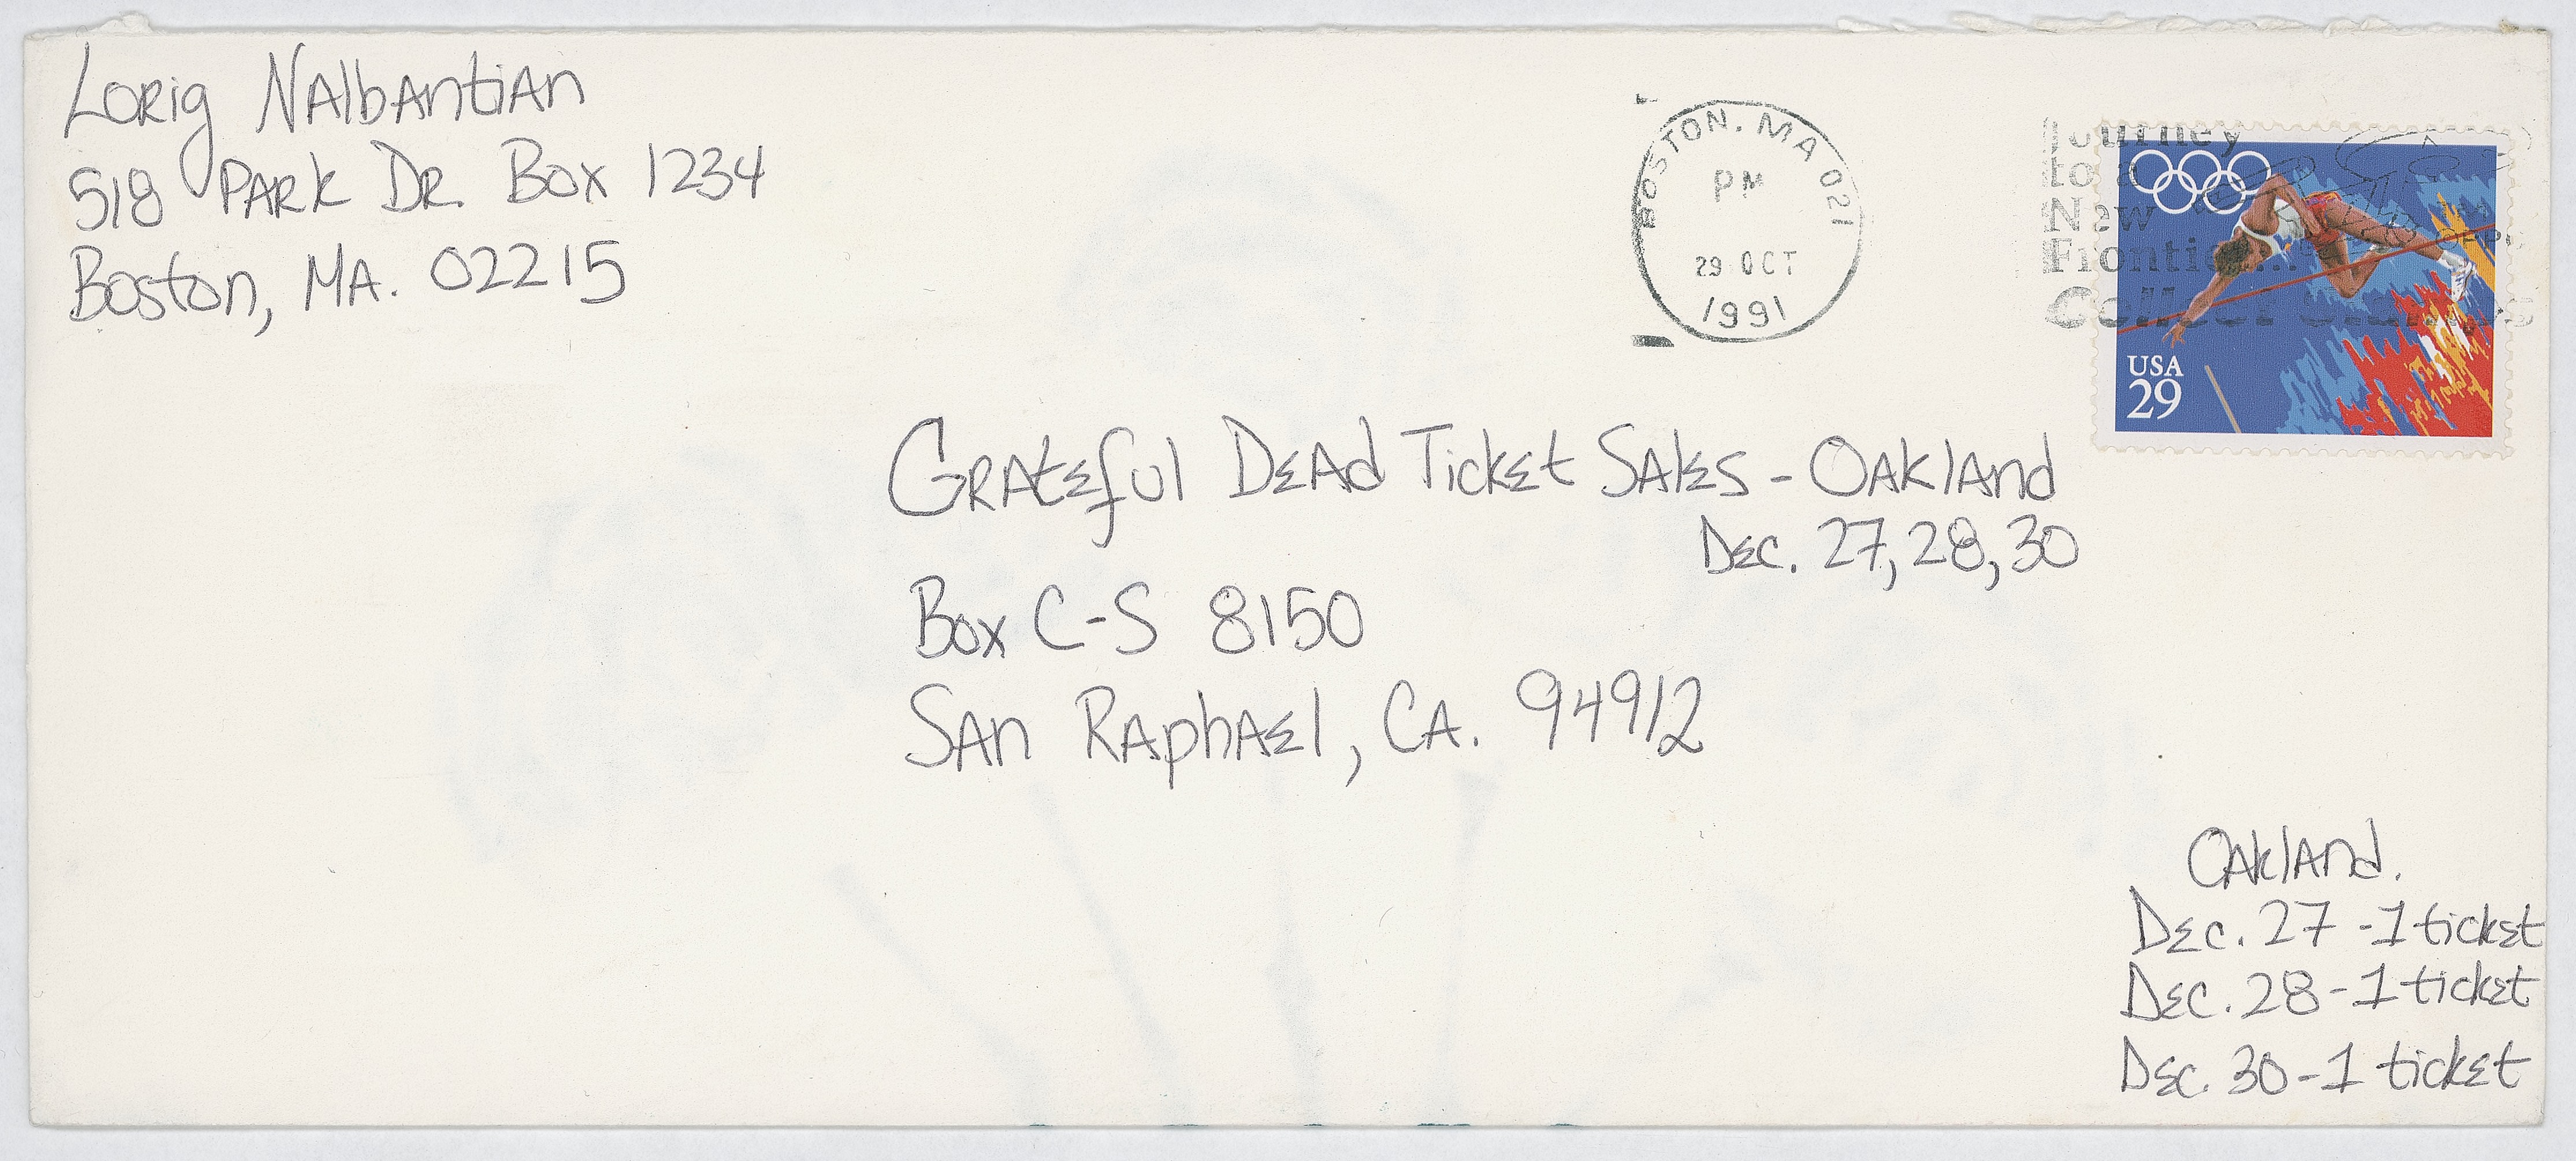 Lorig Nalbantian
518 Park Dr. Box 1234
Boston, MA. 02215
BOSTON, MA 021
PM
29 OCT
1991
Journey
to a
New
Frontie...
Collect Stamps
USA
29
Grateful Dead Ticket Sales - Oakland
Dec. 27, 28, 30
Box C-S 8150
San Raphael, CA. 94912
Oakland.
Dec. 27 - 1 ticket
Dec. 28 - 1 ticket
Dec. 30 - 1 ticket